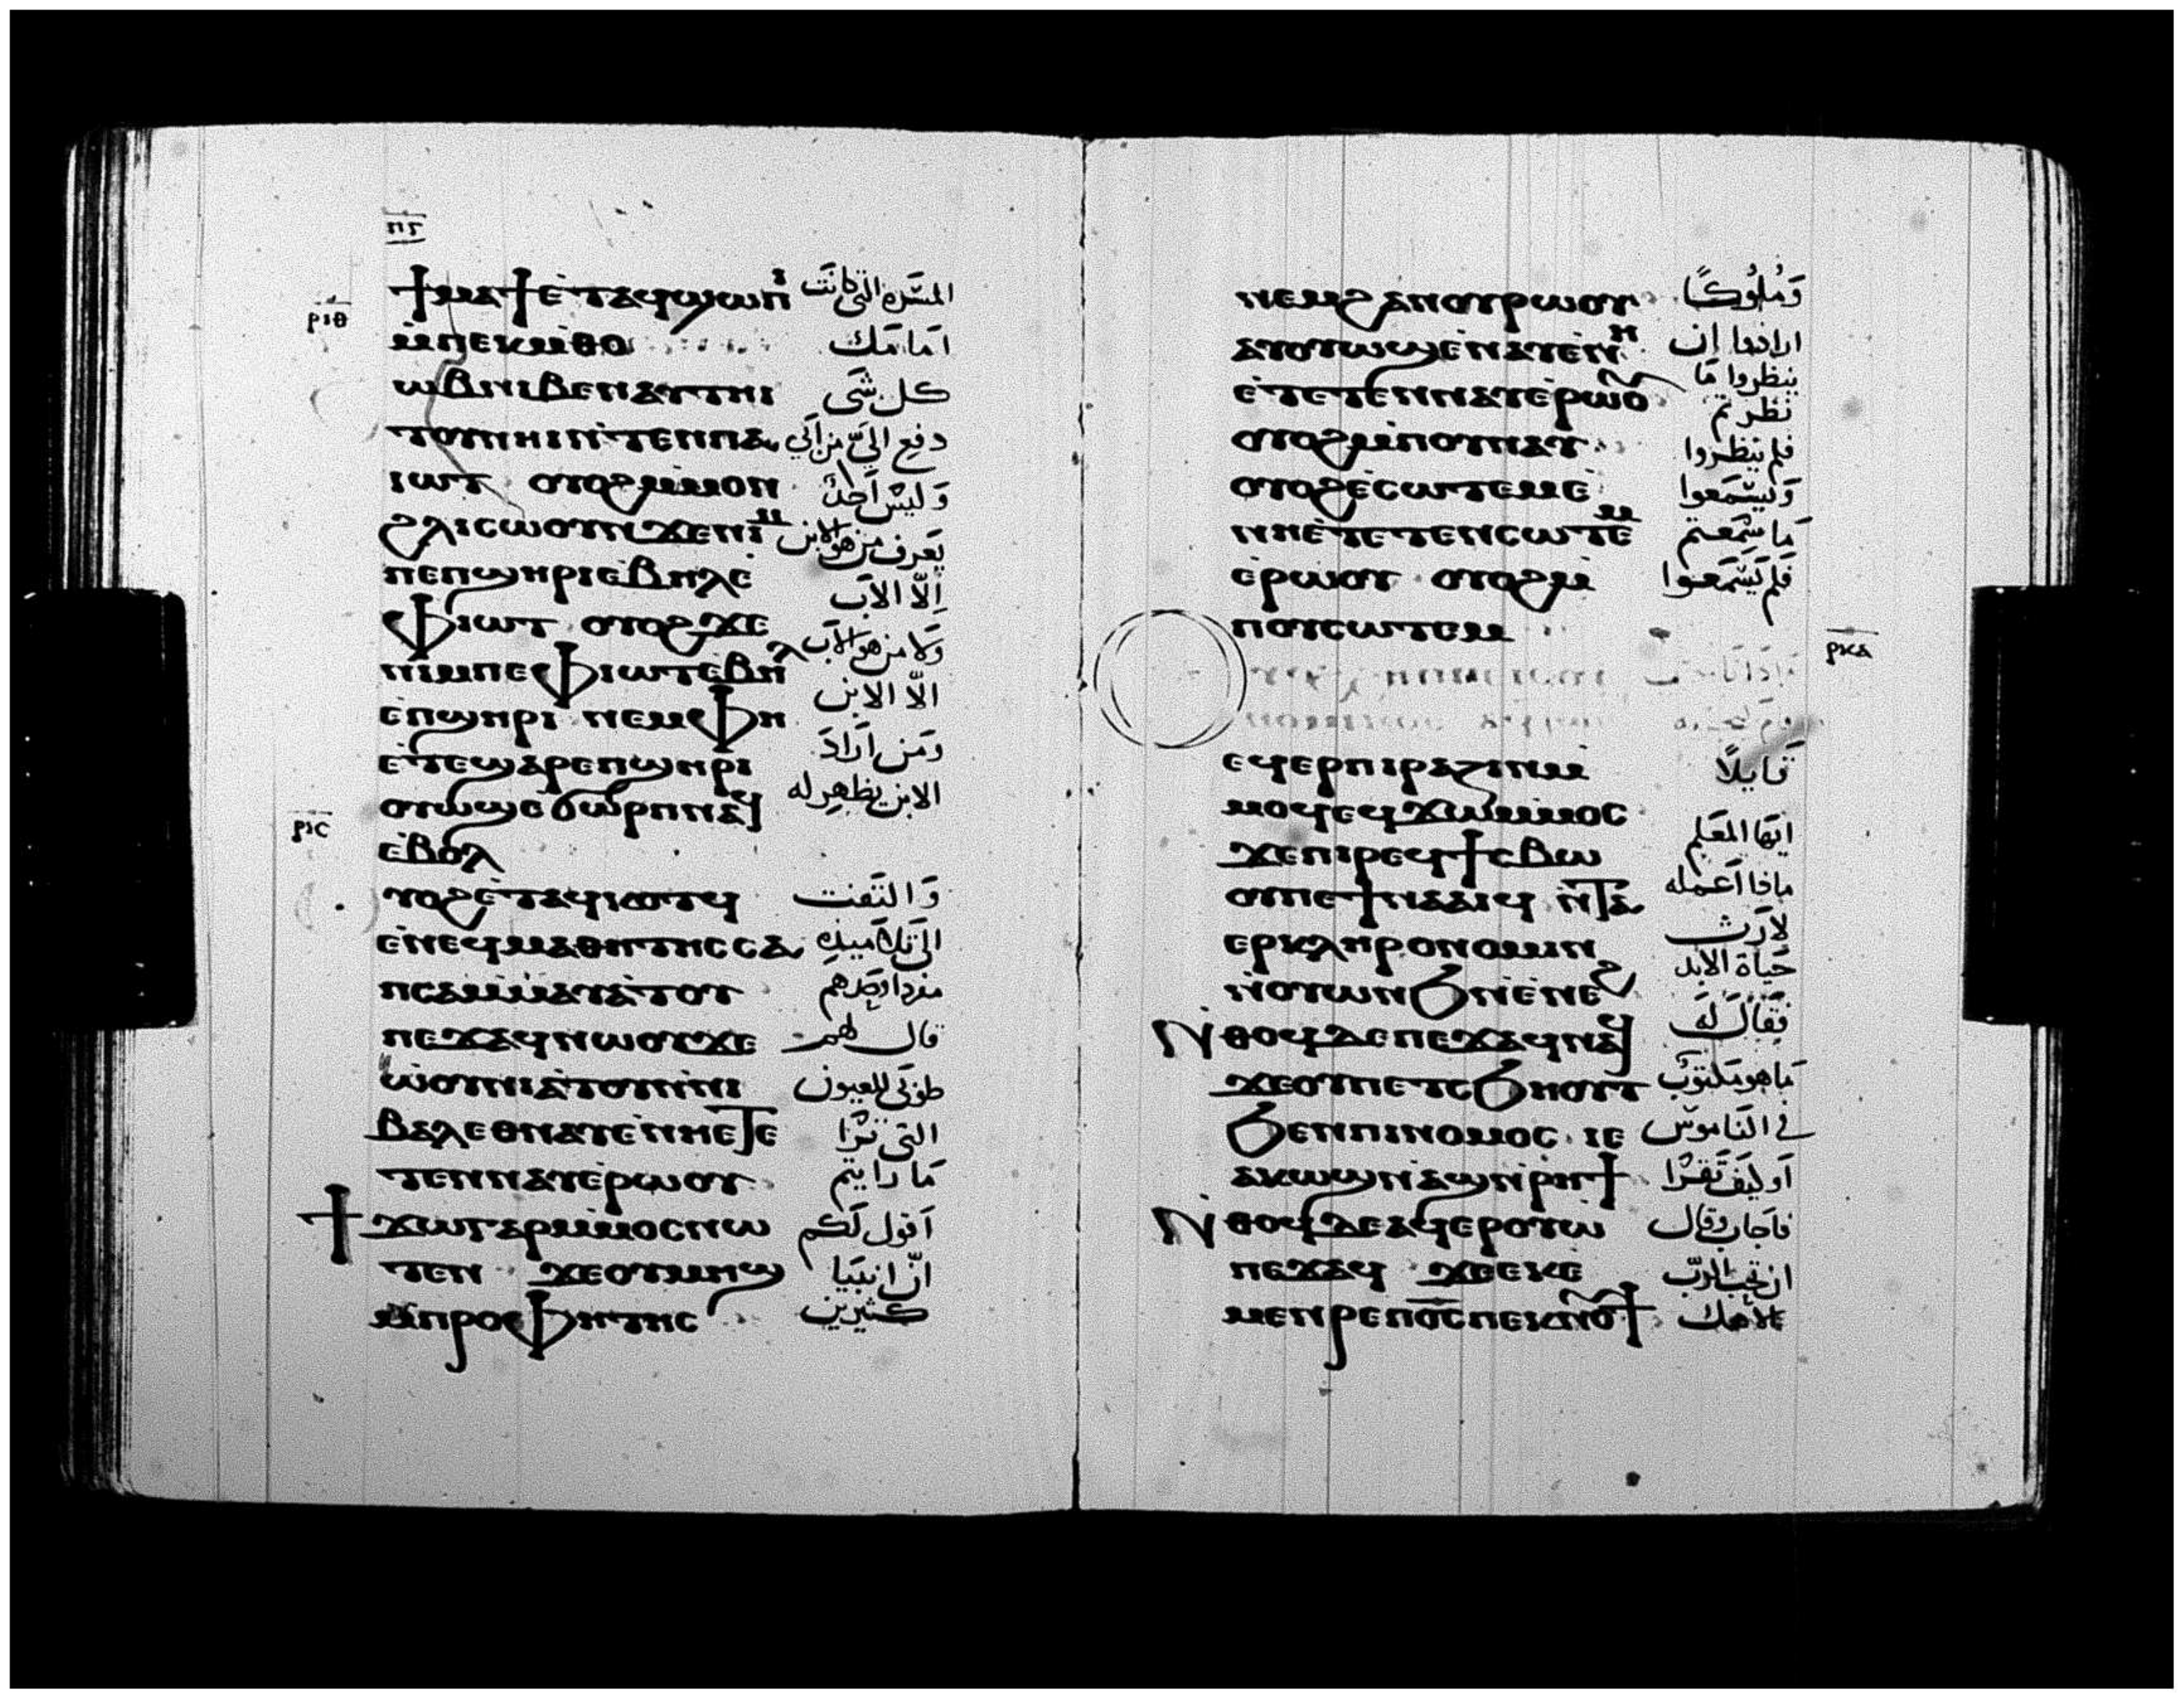 ⲡⲅ
ϯⲙⲁϯ ⲉⲧⲁϥϣⲱⲡⲓ المسره التي كانت
ⲣⲓⲑ
ⲙ̀ⲡⲉⲕⲙ̀ⲑⲟ امامك
ϩⲱⲃ ⲛⲓⲃⲉⲛ ⲁⲩⲧⲏⲓ كل شي
ⲧⲟⲩ ⲛⲏⲓ ⲛ̀ⲧⲉⲛ ⲡⲁ دفع اليّ من ابي
ⲓⲱⲧ ⲟⲩⲟϩ ⲙ̀ⲙⲟⲛ وليس احد
ϩⲗⲓ ⲥⲱⲟⲩⲛ ϫⲉ ⲛⲓⲙ يعرف من هو الابن
ⲡⲉ ⲡϣⲏⲣⲓ ⲉⲃⲏⲗ ⲉ̀ اِلّا الاب
ⲫⲓⲱⲧ ⲟⲩⲟϩ ϫⲉ ولا من هو الاب
ⲛⲓⲙ ⲡⲉ ⲫⲓⲱⲧ ⲉ̀ⲃⲏⲗ الّا الابن
ⲉ̀ⲡϣⲏⲣⲓ ⲛⲉⲙ ⲫⲏ ومن اراد
ⲉ̀ⲧⲉϣⲁⲣⲉ ⲡϣⲏⲣⲓ الابن يظهر له
ⲟⲩⲱϣ ⲉ̀ϭⲱⲣⲡ ⲛⲁϥ
ⲣⲓⲥ
ⲉ̀ⲃⲟⲗ
ⲩⲟϩ ⲉ̀ⲧⲁϥⲫⲟⲛϩϥ والتفت
ⲉ̀ⲛⲉϥⲙⲁⲑⲏⲧⲏⲥ ⲥⲁ الى تلاميده
ⲡⲥⲁ ⲙ̀ⲙⲁⲩⲁ̀ⲧⲟⲩ
ⲡⲉϫⲁϥ ⲛⲱⲟⲩ ϫⲉ قال لهم
ⲱⲟⲩⲛⲓⲁ̀ⲧⲟⲩ ⲛ̀ⲛⲓ طوبى للعيون
ⲃⲁⲗ ⲉⲑⲛⲁⲩ ⲉ̀ⲛⲏ ⲉⲧⲉ التي ترا
ⲧⲉⲛⲛⲁⲩ ⲉ̀ⲣⲱⲟⲩ ما رايتم
ϯϫⲱ ⲅⲁⲣ ⲙ̀ⲙⲟⲥ ⲛⲱ اقول لكم
ⲧⲉⲛ ϫⲉ ⲟⲩⲙⲏϣ انّ انبيا
ⲙ̀ⲡⲣⲟⲫⲏⲧⲏⲥ كثيرين
ⲛⲉⲙ ϩⲁⲛⲟⲩⲣⲱⲟⲩ وملوكًا
ⲁⲩⲟⲩⲱϣ ⲉ̀ⲛⲁⲩ ⲉ̀ⲛⲏ ارادوا ان
ينظروا ما
ⲉ̀ⲧⲉⲧⲉⲛⲛⲁⲩ ⲉ̀ⲣⲱⲟⲩ نظرتم
ⲟⲩⲟϩ ⲙ̀ⲡⲟⲩⲛⲁⲩ فلم ينظروا
ⲟⲩⲟϩ ⲉ̀ⲥⲱⲧⲉⲙ ⲉ̀ وليسمعوا
ⲛⲏ ⲉ̀ⲧⲉⲧⲉⲛⲥⲱⲧⲉⲙ ما سمعتم
ⲉ̀ⲣⲱⲟⲩ ⲟⲩⲟϩ ⲙ̀ فلم يسمعوا
ⲡⲟⲩⲥⲱⲧⲉⲙ
ⲣⲕⲁ
ⲉϥⲉⲣⲡⲓⲣⲁⲍⲓⲛ ⲙ̀ قايلًا
ⲙⲟϥ ⲉϥϫⲱ ⲙ̀ⲙⲟⲥ
ϫⲉ ⲡⲓⲣⲉϥϯⲥⲃⲱ ايها المعلم
ⲟⲩ ⲡⲉ ϯⲛⲁⲁⲓϥ ⲛ̀ⲧⲁ ماذا اعمله
ⲉⲣⲕⲗⲏⲣⲟⲛⲟⲙⲓⲛ لارث
ⲛ̀ⲟⲩⲱⲛϧ ⲛ̀ⲉ̀ⲛⲉϩ حياة الابد
ⲛ̀ⲑⲟϥ ⲇⲉ ⲡⲉϫⲁϥ ⲛⲁϥ فقال له
ϫⲉ ⲟⲩ ⲡⲉⲧⲥϧⲏⲟⲩⲧ ما هو مكتوب
ϧⲉⲛ ⲡⲓⲛⲟⲙⲟⲥ ⲓⲉ في الناموس
ⲁⲕⲱϣ ⲛ̀ⲁϣ ⲛ̀ⲣⲏϯ او كيف تقرا
ⲛ̀ⲑⲟϥ ⲇⲉ ⲁϥⲉⲣⲟⲩⲱ̀ فاجاب وقال
ⲡⲉϫⲁϥ ϫⲉ ⲉⲕⲉ ان تحب الرب
ⲙⲉⲛⲣⲉ ⲡⲟ̅ⲥ̅ ⲡⲉⲕⲛⲟⲩϯ الاهك